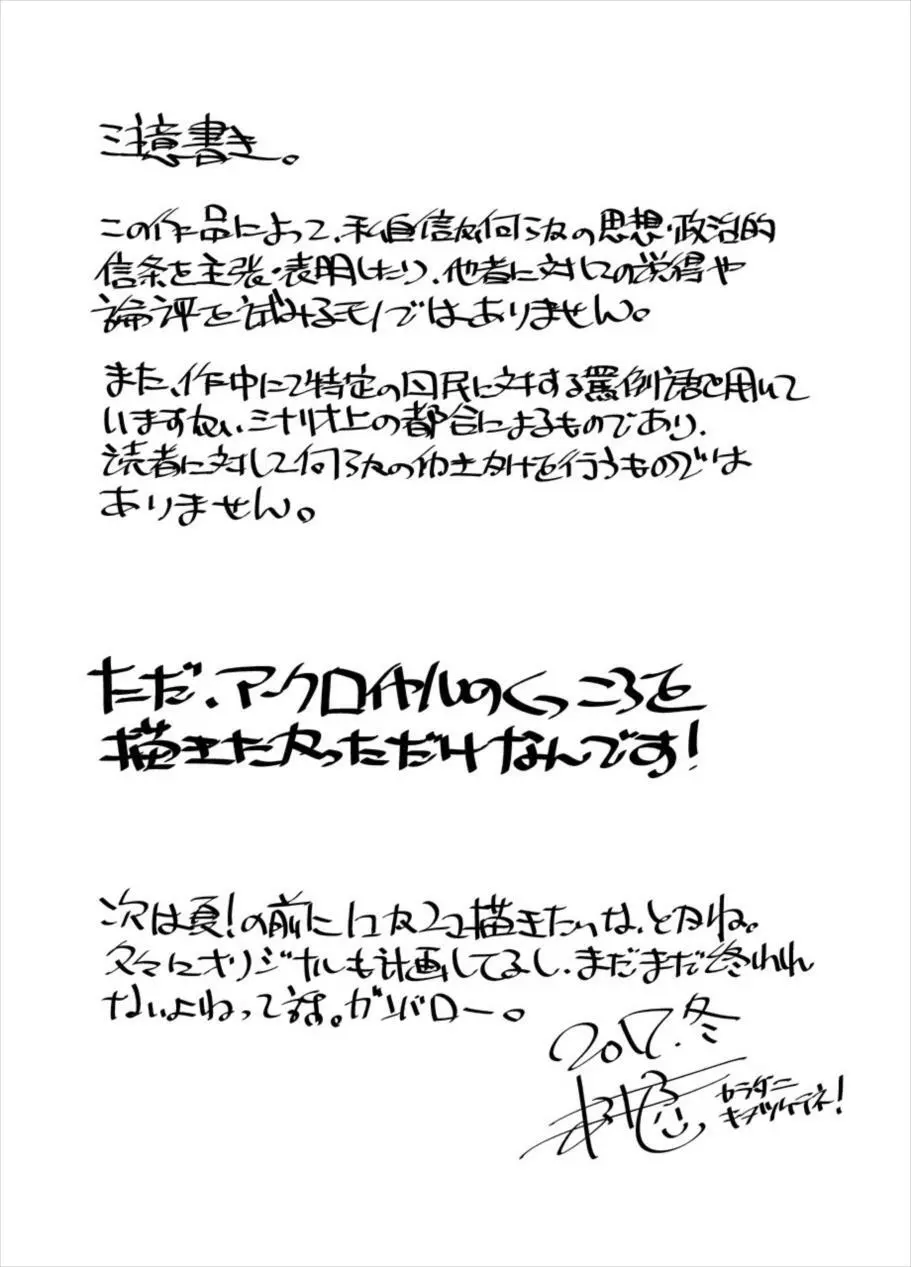 注意書き。
この作品によって、私自信が何らかの思想・政治的
信条を主張・表明したり、他者に対しての説得や
論評を試みるモノではありません。
また、作中にて特定の国民に対する罵倒語を用いて
いますが、シナリオ上の都合によるものであり、
読者に対して何らかの働きかけを行うものでは
ありません。
ただ、アークロイヤルのくっころを
描きたかっただけなんです!
次は夏!の前に1コか2コ描きたいな、とかね。
久々にオリジナルも計画してるし、まだまだ終われ
ないよねって話。ガンバロー。
2017.冬
カラダニ
キヲツケテネ!